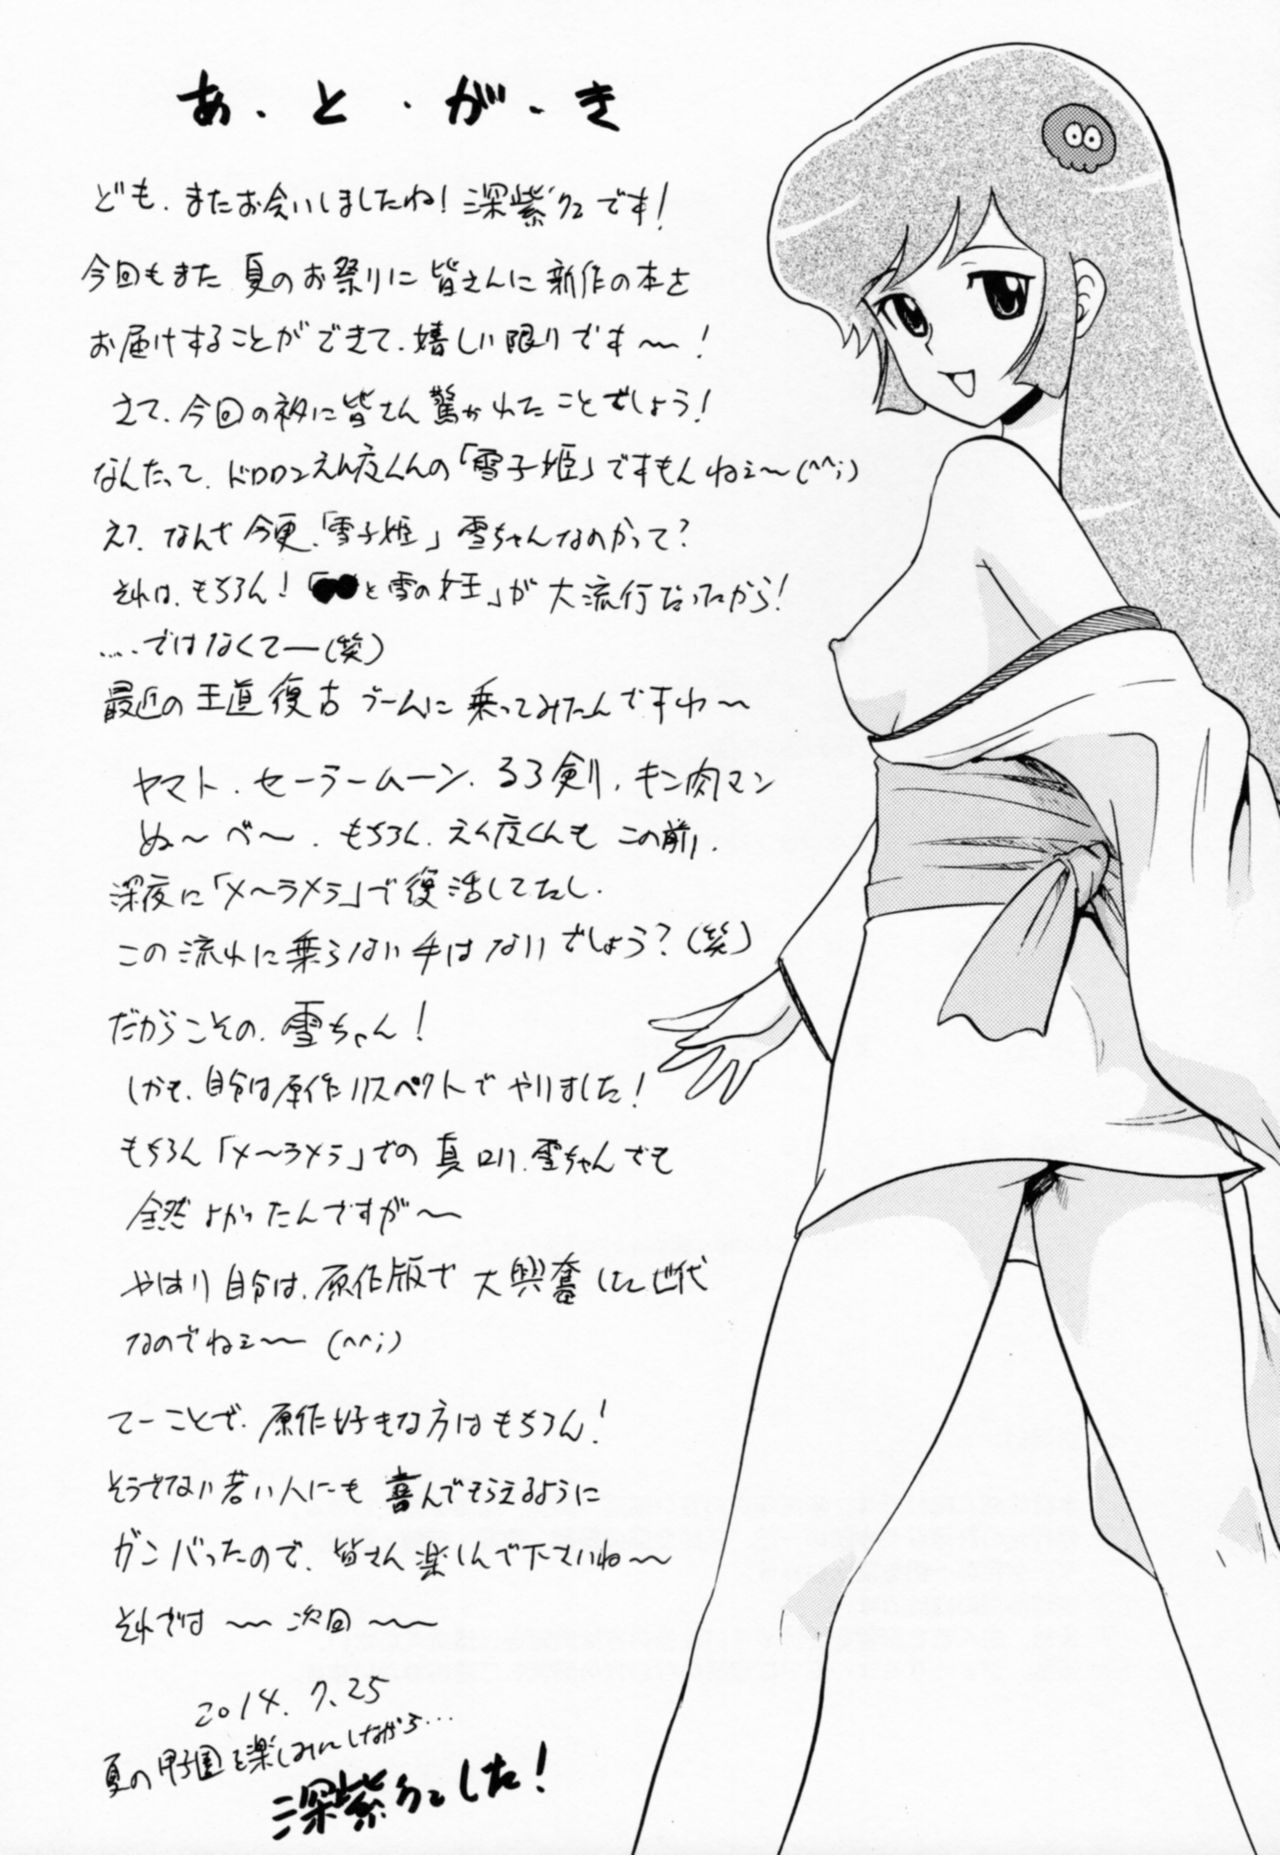 あ・と・が・き
ども、またお会いしましたね!深紫クニです!
今回もまた 夏のお祭りに 皆さんに 新作の本を
お届けすることができて、嬉しい限りです〜!
さて、今回のネタに皆さん驚かれたことでしょう!
なんたって、ドロロンえん魔くんの「雪子姫」ですもんねェ〜(^^;)
え?、なんで今更、「雪子姫」雪ちゃんなのかって?
それは、もちろん!「●●と雪の女王」が 大流行だったから!
....ではなくてー(笑)
最近の 王道復古ブームに 乗ってみたんですわ〜
ヤマト、セーラームーン、るろ剣、キン肉マン
ぬ〜べ〜、もちろん、えん魔くんも この前、
深夜に「メ〜ラメラ」で復活してたし、
この流れに乗らない手はないでしょう?(笑)
だからこその、雪ちゃん!
しかも、自分は原作リスペクトで やりました!
もちろん「メ〜ラメラ」での 真ロリ、雪ちゃんでも
全然よかったんですが〜
やはり自分は、原作版で 大興奮した世代
なのでねェ〜〜 (^^;)
てーことで、原作好きな方はもちろん!
そうでない若い人にも 喜んでもらえるように
ガンバったので、皆さん楽しんで下さいね〜〜
それでは 〜〜 次回 〜〜〜
2014.7.25
夏の甲子園を楽しみにしながら...
深紫クニでした!